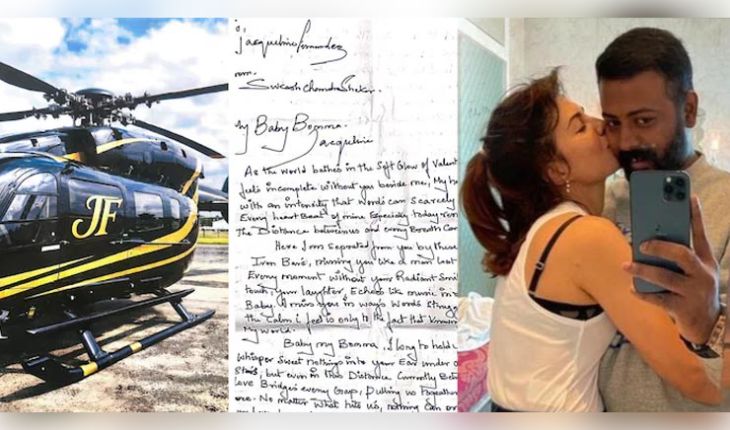 JF
Jacqueline Fernandez
Sukash Chandra Shekar.
My Baby Bomma
Jacqueline
As the world bathes in the Soft Glow of Valen
feels incomplete without you beside me, My he
with an intensity that words can scarcely
Every heart Beat of mine Especially today
The Distance between us and every Breath
Here I am separated from you by these
Iron Bars, missing you like a man lost
Every moment without your Radiant Smil
touch, your laughter, Echoes like music in
Baby, I miss you in ways words
the Calm i feel is only to the fact that
My World.
Baby my Bomma, I long to hold
whisper Sweet nothings into your Ear under
Stars, but even in this Distance Currently Betw
Love Bridges every Gap, Pulling us Together
No matter what hits us, nothing can